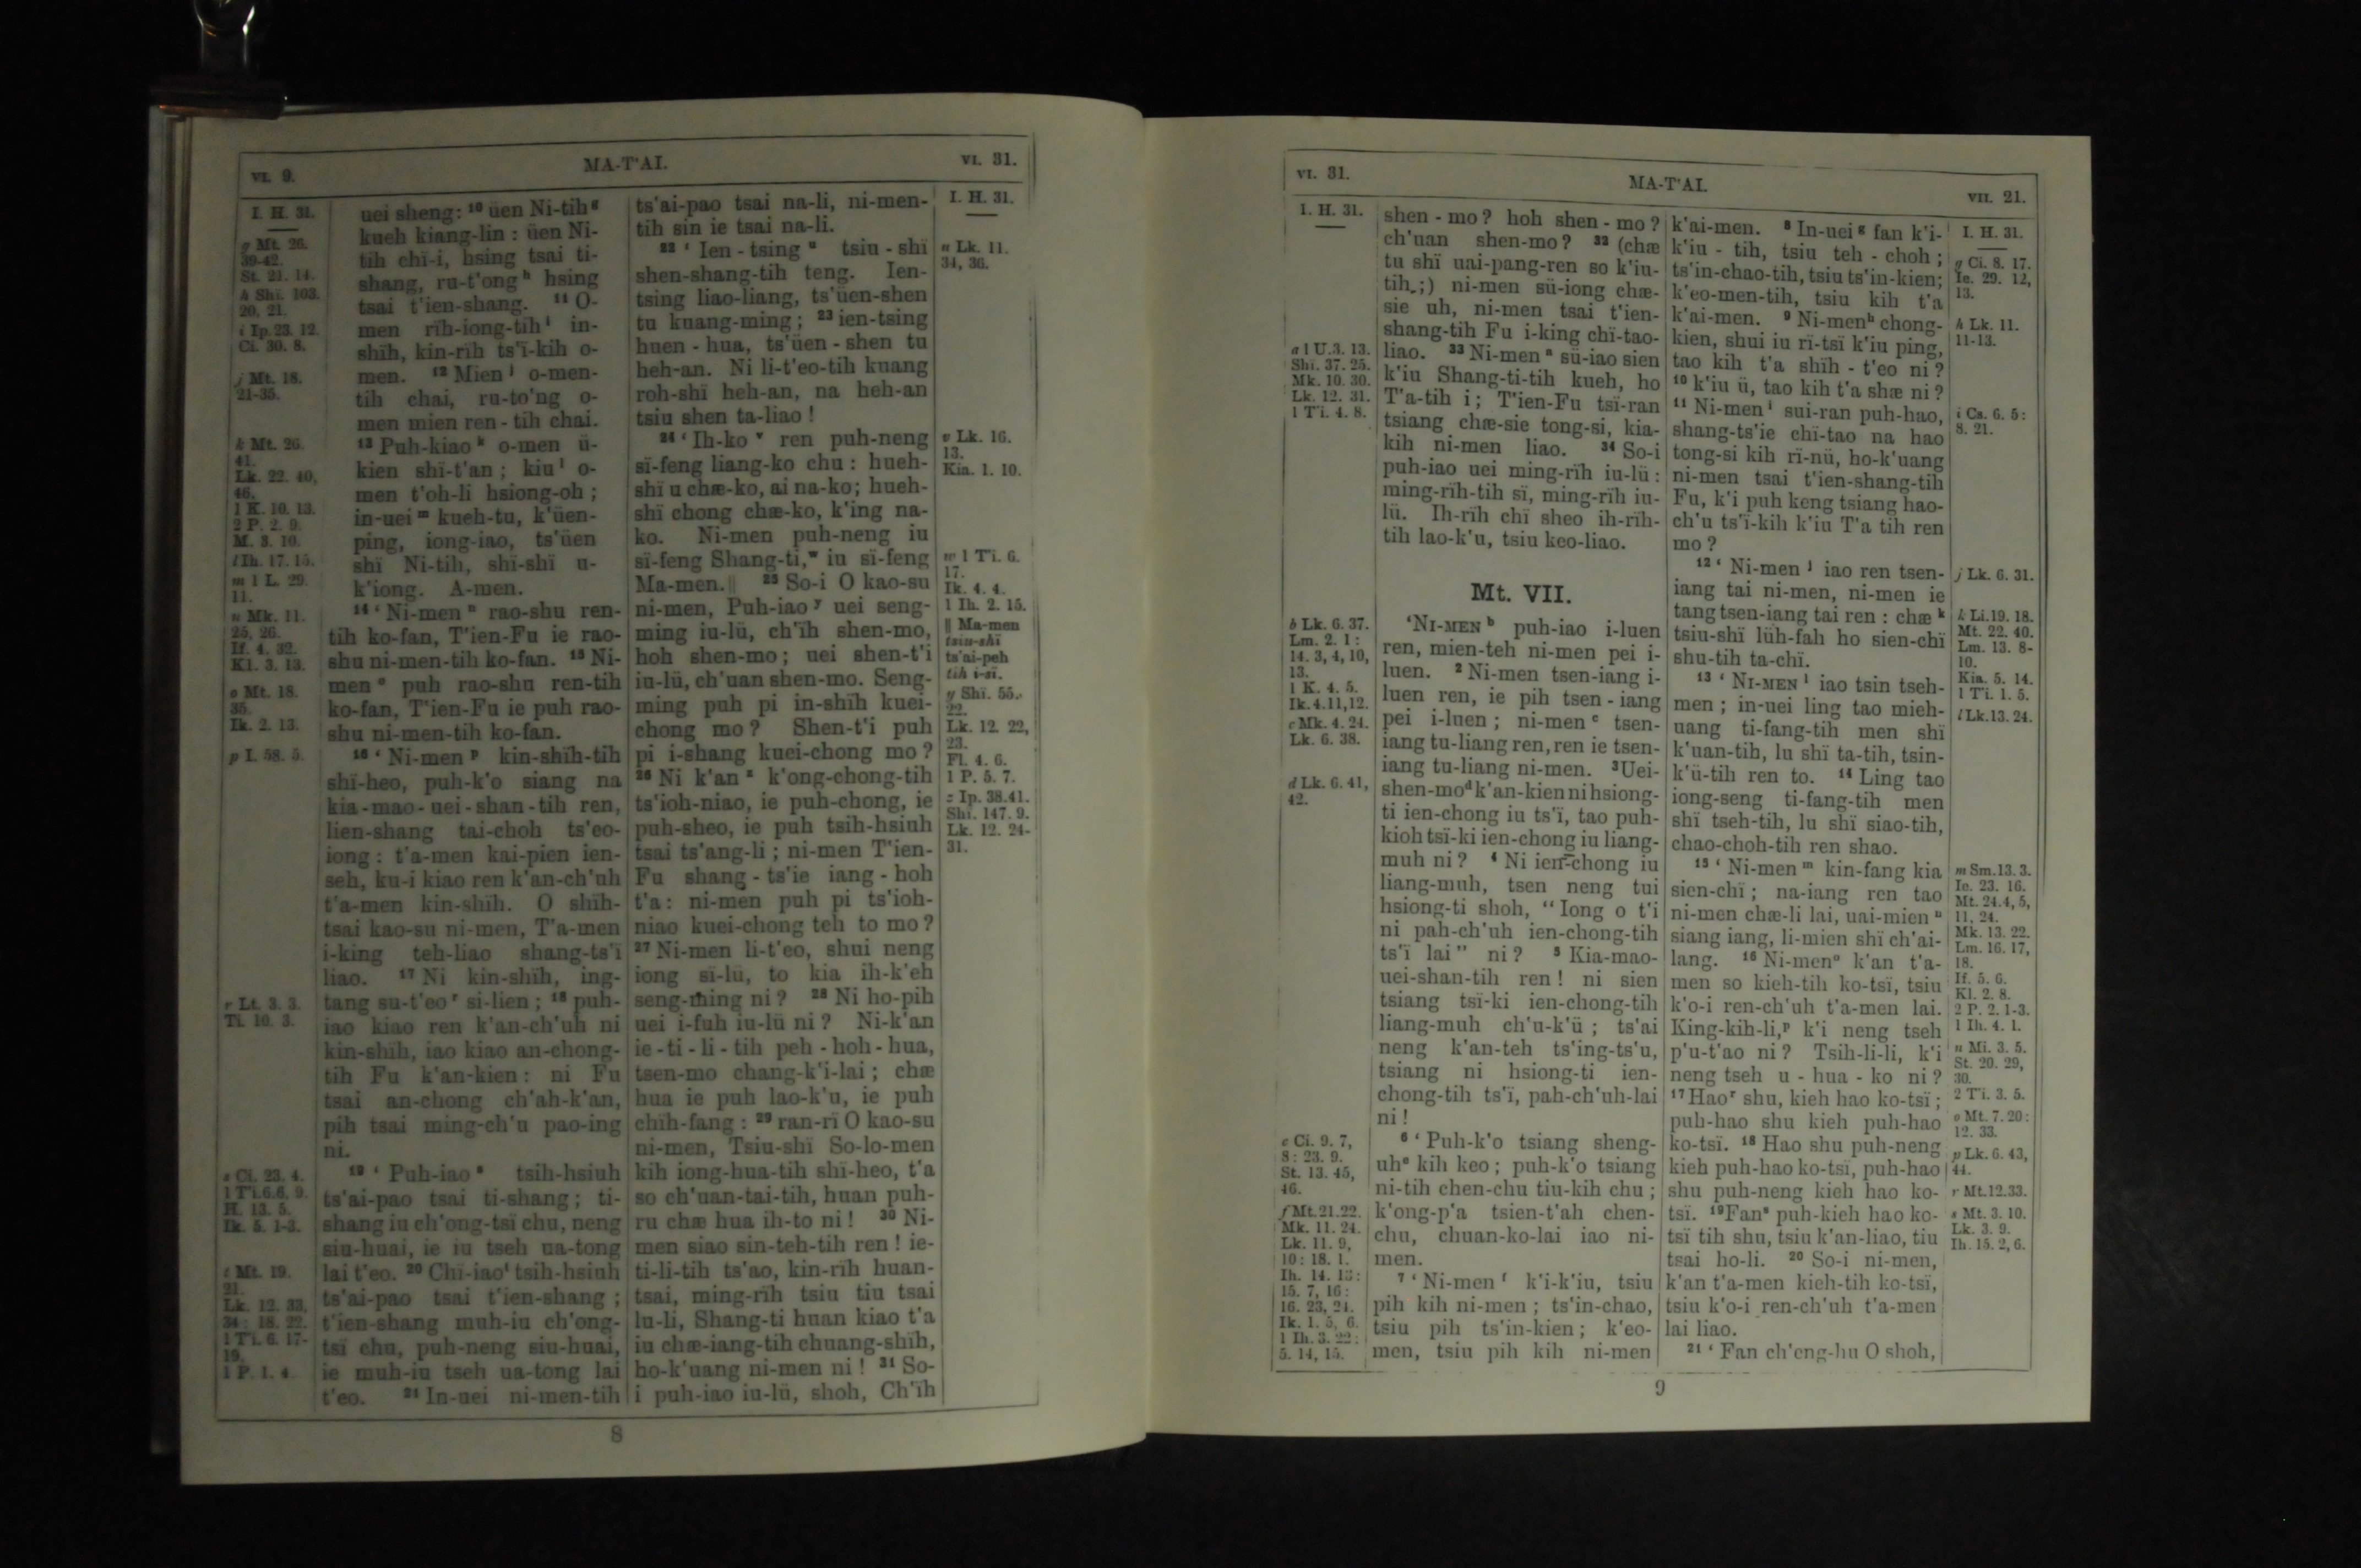 VI. 9.
MA-T'AI.
VI. 31.
I. H. 31.
g Mt. 26.
39-42.
St. 21. 14.
h Shï. 103.
20, 21.
i Ip. 23. 12.
Ci. 30. 8.
j Mt. 18.
21-35.
k Mt. 26.
41.
Lk. 22. 40,
46.
1 K. 10. 13.
2 P. 2. 9.
M. 3. 10.
l Ih. 17. 15.
m 1 L. 29.
11.
n Mk. 11.
25, 26.
If. 4. 32.
Kl. 3. 13.
o Mt. 18.
35.
Ik. 2. 13.
p I. 58. 5.
r Lt. 3. 3.
Ti. 10. 3.
s Ci. 23. 4.
1 Ti. 6. 6, 9.
H. 13. 5.
Ik. 5. 1-3.
t Mt. 19.
21.
Lk. 12. 33,
34: 18. 22.
1 Ti. 6. 17-
19.
1 P. 1. 4.
uei sheng: 10 üen Ni-tih g
kueh kiang-lin : üen Ni-
tih chï-i, hsing tsai ti-
shang, ru-t'ong h hsing
tsai t'ien-shang. 11 O-
men rïh-iong-tih i in-
shïh, kin-rïh ts'ï-kih o-
men. 12 Mien j o-men-
tih chai, ru-to'ng o-
men mien ren-tih chai.
13 Puh-kiao k o-men ü-
kien shï-t'an ; kiu l o-
men t'oh-li hsiong-oh ;
in-uei m kueh-tu, k'üen-
ping, iong-iao, ts'üen
shï Ni-tih, shï-shï u-
k'iong. A-men.
14 ‘ Ni-men n rao-shu ren-
tih ko-fan, T'ien-Fu ie rao-
shu ni-men-tih ko-fan. 15 Ni-
men o puh rao-shu ren-tih
ko-fan, T'ien-Fu ie puh rao-
shu ni-men-tih ko-fan.
16 ‘ Ni-men p kin-shïh-tih
shï-heo, puh-k'o siang na
kia-mao-uei-shan-tih ren,
lien-shang tai-choh ts'eo-
iong : t'a-men kai-pien ien-
seh, ku-i kiao ren k'an-ch'uh
t'a-men kin-shïh. O shïh-
tsai kao-su ni-men, T'a-men
i-king teh-liao shang-ts'ï
liao. 17 Ni kin-shïh, ing-
tang su-t'eo r si-lien ; 18 puh-
iao kiao ren k'an-ch'uh ni
kin-shïh, iao kiao an-chong-
tih Fu k'an-kien : ni Fu
tsai an-chong ch'ah-k'an,
pih tsai ming-ch'u pao-ing
ni.
19 ‘ Puh-iao s tsih-hsiuh
ts'ai-pao tsai ti-shang ; ti-
shang iu ch'ong-tsï chu, neng
siu-huai, ie iu tseh ua-tong
lai t'eo. 20 Chï-iao t tsih-hsiuh
ts'ai-pao tsai t'ien-shang ;
t'ien-shang muh-iu ch'ong-
tsï chu, puh-neng siu-huai,
ie muh-iu tseh ua-tong lai
t'eo. 21 In-uei ni-men-tih
ts'ai-pao tsai na-li, ni-men-
tih sin ie tsai na-li.
22 ‘ Ien - tsing u tsiu - shï
shen-shang-tih teng. Ien-
tsing liao-liang, ts'üen-shen
tu kuang-ming ; 23 ien-tsing
huen - hua, ts'üen - shen tu
heh-an. Ni li-t'eo-tih kuang
roh-shï heh-an, na heh-an
tsiu shen ta-liao !
24 ‘ Ih-ko v ren puh-neng
sï-feng liang-ko chu : hueh-
shï u chæ-ko, ai na-ko; hueh-
shï chong chæ-ko, k'ing na-
ko. Ni-men puh-neng iu
sï-feng Shang-ti, w iu sï-feng
Ma-men.‖ 25 So-i O kao-su
ni-men, Puh-iao y uei seng-
ming iu-lü, ch'ïh shen-mo,
hoh shen-mo ; uei shen-t'i
iu-lü, ch'uan shen-mo. Seng-
ming puh pi in-shïh kuei-
chong mo ? Shen-t'i puh
pi i-shang kuei-chong mo ?
26 Ni k'an z k'ong-chong-tih
ts'ioh-niao, ie puh-chong, ie
puh-sheo, ie puh tsih-hsiuh
tsai ts'ang-li ; ni-men T'ien-
Fu shang - ts'ie iang - hoh
t'a : ni-men puh pi ts'ioh-
niao kuei-chong teh to mo ?
27 Ni-men li-t'eo, shui neng
iong sï-lü, to kia ih-k'eh
seng-ming ni ? 28 Ni ho-pih
uei i-fuh iu-lü ni ? Ni-k'an
ie - ti - li - tih peh - hoh - hua,
tsen-mo chang-k'i-lai ; chæ
hua ie puh lao-k'u, ie puh
chïh-fang : 29 ran-rï O kao-su
ni-men, Tsiu-shï So-lo-men
kih iong-hua-tih shï-heo, t'a
so ch'uan-tai-tih, huan puh-
ru chæ hua ih-to ni ! 30 Ni-
men siao sin-teh-tih ren ! ie-
ti-li-tih ts'ao, kin-rïh huan-
tsai, ming-rïh tsiu tiu tsai
lu-li, Shang-ti huan kiao t'a
iu chæ-iang-tih chuang-shïh,
ho-k'uang ni-men ni ! 31 So-
i puh-iao iu-lü, shoh, Ch'ïh
I. H. 31.
u Lk. 11.
34, 36.
v Lk. 16.
13.
Kia. 1. 10.
w 1 Ti. 6.
17.
Ik. 4. 4.
1 Ih. 2. 15.
‖ Ma-men
tsiu-shï
ts'ai-peh
tih i-sï.
y Shï. 55.
22.
Lk. 12. 22,
23.
Fl. 4. 6.
1 P. 5. 7.
z Ip. 38.41.
Shï. 147. 9.
Lk. 12. 24-
31.
8
VI. 31.
MA-T'AI.
VII. 21.
I. H. 31.
a 1 U. 3. 13.
Shï. 37. 25.
Mk. 10. 30.
Lk. 12. 31.
1 Ti. 4. 8.
b Lk. 6. 37.
Lm. 2. 1 :
14. 3, 4, 10,
13.
1 K. 4. 5.
Ik. 4. 11, 12.
c Mk. 4. 24.
Lk. 6. 38.
d Lk. 6. 41,
42.
e Ci. 9. 7,
8 : 23. 9.
St. 13. 45,
46.
f Mt. 21. 22.
Mk. 11. 24.
Lk. 11. 9,
10 : 18. 1.
Ih. 14. 13 :
15. 7, 16 :
16. 23, 24.
Ik. 1. 5, 6.
1 Ih. 3. 22 :
5. 14, 15.
shen - mo ? hoh shen - mo ?
ch'uan shen-mo ? 32 (chæ
tu shï uai-pang-ren so k'iu-
tih ;) ni-men sü-iong chæ-
sie uh, ni-men tsai t'ien-
shang-tih Fu i-king chï-tao-
liao. 33 Ni-men a sü-iao sien
k'iu Shang-ti-tih kueh, ho
T'a-tih i ; T'ien-Fu tsï-ran
tsiang chæ-sie tong-si, kia-
kih ni-men liao. 34 So-i
puh-iao uei ming-rïh iu-lü :
ming-rïh-tih sï, ming-rïh iu-
lü. Ih-rïh chï sheo ih-rïh-
tih lao-k'u, tsiu keo-liao.
Mt. VII.
‘NI-MEN b puh-iao i-luen
ren, mien-teh ni-men pei i-
luen. 2 Ni-men tsen-iang i-
luen ren, ie pih tsen - iang
pei i-luen ; ni-men c tsen-
iang tu-liang ren, ren ie tsen-
iang tu-liang ni-men. 3 Uei-
shen-mo d k'an-kien ni hsiong-
ti ien-chong iu ts'ï, tao puh-
kioh tsï-ki ien-chong iu liang-
muh ni ? 4 Ni ien-chong iu
liang-muh, tsen neng tui
hsiong-ti shoh, “ Iong o t'i
ni pah-ch'uh ien-chong-tih
ts'ï lai ” ni ? 5 Kia-mao-
uei-shan-tih ren ! ni sien
tsiang tsï-ki ien-chong-tih
liang-muh ch'u-k'ü ; ts'ai
neng k'an-teh ts'ing-ts'u,
tsiang ni hsiong-ti ien-
chong-tih ts'ï, pah-ch'uh-lai
ni !
6 ‘ Puh-k'o tsiang sheng-
uh e kih keo ; puh-k'o tsiang
ni-tih chen-chu tiu-kih chu ;
k'ong-p'a tsien-t'ah chen-
chu, chuan-ko-lai iao ni-
men.
7 ‘ Ni-men f k'i-k'iu, tsiu
pih kih ni-men ; ts'in-chao,
tsiu pih ts'in-kien ; k'eo-
men, tsiu pih kih ni-men
k'ai-men. 8 In-uei g fan k'i-
k'iu - tih, tsiu teh - choh ;
ts'in-chao-tih, tsiu ts'in-kien;
k'eo-men-tih, tsiu kih t'a
k'ai-men. 9 Ni-men h chong-
kien, shui iu rï-tsï k'iu ping,
tao kih t'a shïh - t'eo ni ?
10 k'iu ü, tao kih t'a shæ ni ?
11 Ni-men i sui-ran puh-hao,
shang-ts'ie chï-tao na hao
tong-si kih rï-nü, ho-k'uang
ni-men tsai t'ien-shang-tih
Fu, k'i puh keng tsiang hao-
ch'u ts'ï-kih k'iu T'a tih ren
mo ?
12 ‘ Ni-men j iao ren tsen-
iang tai ni-men, ni-men ie
tang tsen-iang tai ren : chæ k
tsiu-shï lüh-fah ho sien-chï
shu-tih ta-chï.
13 ‘ NI-MEN l iao tsin tseh-
men ; in-uei ling tao mieh-
uang ti-fang-tih men shï
k'uan-tih, lu shï ta-tih, tsin-
k'ü-tih ren to. 14 Ling tao
iong-seng ti-fang-tih men
shï tseh-tih, lu shï siao-tih,
chao-choh-tih ren shao.
15 ‘ Ni-men m kin-fang kia
sien-chï ; na-iang ren tao
ni-men chæ-li lai, uai-mien n
siang iang, li-mien shï ch'ai-
lang. 16 Ni-men o k'an t'a-
men so kieh-tih ko-tsï, tsiu
k'o-i ren-ch'uh t'a-men lai.
King-kih-li, p k'i neng tseh
p'u-t'ao ni ? Tsih-li-li, k'i
neng tseh u - hua - ko ni ?
17 Hao r shu, kieh hao ko-tsï ;
puh-hao shu kieh puh-hao
ko-tsï. 18 Hao shu puh-neng
kieh puh-hao ko-tsï, puh-hao
shu puh-neng kieh hao ko-
tsï. 19 Fan s puh-kieh hao ko-
tsï tih shu, tsiu k'an-liao, tiu
tsai ho-li. 20 So-i ni-men,
k'an t'a-men kieh-tih ko-tsï,
tsiu k'o-i ren-ch'uh t'a-men
lai liao.
21 ‘ Fan ch'eng-hu O shoh,
I. H. 31.
g Ci. 8. 17.
Ie. 29. 12,
13.
h Lk. 11.
11-13.
i Cs. 6. 5 :
8. 21.
j Lk. 6. 31.
k Li. 19. 18.
Mt. 22. 40.
Lm. 13. 8-
10.
Kia. 5. 14.
1 Ti. 1. 5.
l Lk. 13. 24.
m Sm. 13. 3.
Ie. 23. 16.
Mt. 24. 4, 5,
11, 24.
Mk. 13. 22.
Lm. 16. 17,
18.
If. 5. 6.
Kl. 2. 8.
2 P. 2. 1-3.
1 Ih. 4. 1.
n Mi. 3. 5.
St. 20. 29,
30.
2 Ti. 3. 5.
o Mt. 7. 20 :
12. 33.
p Lk. 6. 43,
44.
r Mt. 12. 33.
s Mt. 3. 10.
Lk. 3. 9.
Ih. 15. 2, 6.
9